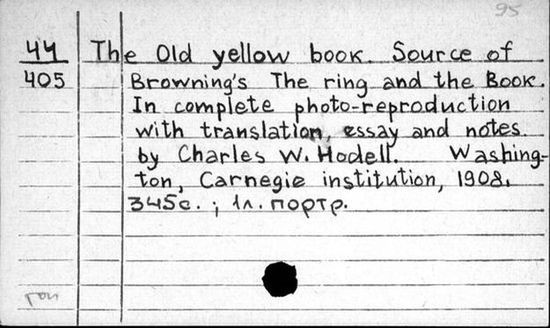 95
44 The Old yellow book. Source of
405 Browning's The ring and the Book.
In complete photo-reproduction
with translation, essay and notes
by Charles W. Hodell. Washing-
ton, Carnegie institution, 1908.
345с.; 1л. портр.